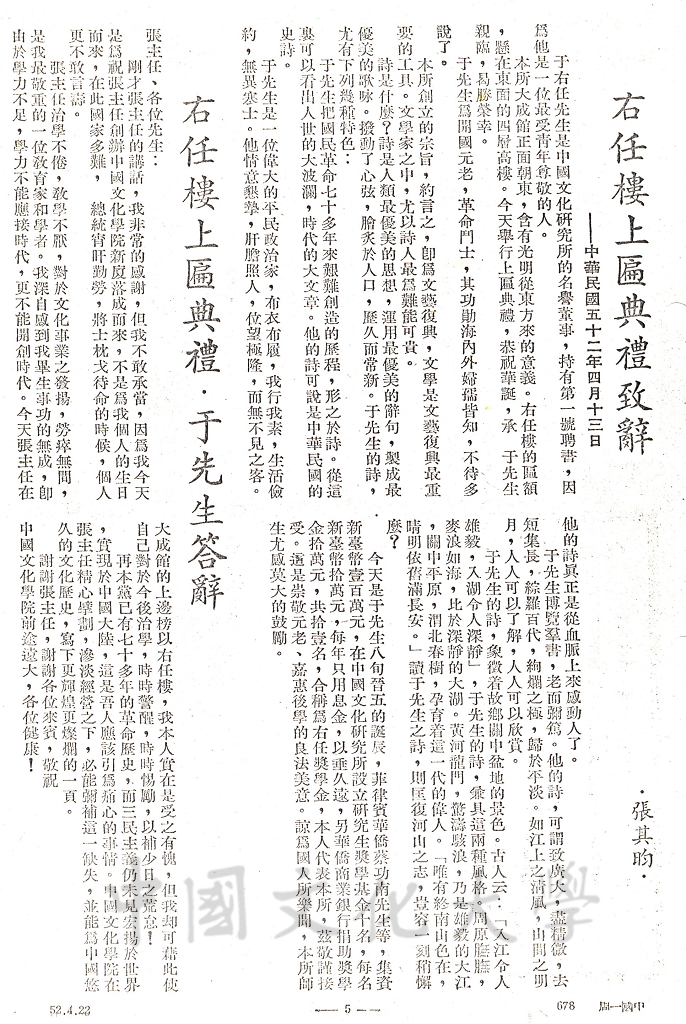 右任樓上匾典禮致辭
——中華民國五十二年四月十三日
·張其昀·
于右任先生是中國文化研究所的名譽董事，持有第一號聘書，因
爲他是一位最受青年尊敬的人。
本所大成館正面朝東，含有光明從東方來的意義。右任樓的匾額
，懸在東面的四層高樓。今天舉行上匾典禮，恭祝華誕，承　于先生
親臨，曷勝榮幸。
于先生爲開國元老，革命鬥士，其功勛海內外婦孺皆知，不待多
說了。
本所創立的宗旨，約言之，卽爲文藝復興，文學是文藝復興最重
要的工具。文學家之中，尤以詩人最爲難能可貴。
詩是什麼？詩是人類最優美的思想，運用最優美的辭句，製成最
優美的歌咏。撥動了心弦，膾炙於人口，歷久而常新。于先生的詩，
尤有下列幾種特色：
于先生把國民革命七十多年來艱難創造的歷程，形之於詩。從這
裏可以看出人世的大波瀾，時代的大文章。他的詩可說是中華民國的
史詩。
于先生是一位偉大的平民政治家，布衣布履，我行我素，生活儉
約，無異寒士。他情意懇摯，肝膽照人，位望極隆，而無不見之客。
他的詩眞正是從血脈上來感動人了。
于先生博覽羣書，老而彌篤。他的詩，可謂致廣大，盡精微，去
短集長，綜羅百代，絢爛之極，歸於平淡。如江上之清風，山間之明
月，人人可以了解，人人可以欣賞。
于先生的詩，象徵着故鄉關中盆地的景色。古人云：「入江令人
雄毅，入湖令人深靜」，于先生的詩，兼具這兩種風格。周原膴膴，
麥浪如海，比於深靜的大湖。黃河龍門，驚濤駭浪，乃是雄毅的大江
，關中平原，渭北春樹，孕育着這一代的偉人。「唯有終南山色在，
晴明依舊滿長安。」讀于先生之詩，則匡復河山之志，豈容一刻稍懈
麼？
今天是于先生八旬晉五的誕辰，菲律賓華僑蔡功南先生等，集資
新臺幣壹百萬元，在中國文化研究所設立研究生獎學基金十名，每名
新臺幣拾萬元，每年只用息金，以垂久遠，另華僑商業銀行捐助獎學
金拾萬元，共拾壹名，合稱爲右任獎學金，本人代表本所，茲敬謹接
受。這是崇敬元老、嘉惠後學的良法美意。諒爲國人所樂聞，本所師
生尤感莫大的鼓勵。
右任樓上匾典禮·于先生答辭
張主任，各位先生：
剛才張主任的講話，我非常的感謝，但我不敢承當，因爲我今天
是爲祝張主任創辦中國文化學院新廈落成而來，不是爲我個人的生日
而來，在此國家多難，　總統宵旰勤勞，將士枕戈待命的時候，個人
更不敢言壽。
張主任治學不倦，敎學不厭，對於文化事業之發揚，勞瘁無間，
是我最敬重的一位敎育家和學者。我深自感到我畢生事功的無成，卽
由於學力不足，學力不能應接時代，更不能開創時代。今天張主任在
大成館的上邊榜以右任樓，我本人實在是受之有愧，但我却可藉此使
自己對於今後治學，時時警醒，時時惕勵，以補少日之荒怠！
再本黨已有七十多年的革命歷史，而三民主義仍未見宏揚於世界
，實現於中國大陸，這是吾人應該引爲痛心的事情。中國文化學院在
張主任精心擘劃，滲淡經營之下，必能彌補這一缺失，並能爲中國悠
久的文化歷史，寫下更輝煌更燦爛的一頁。
謝謝張主任，謝謝各位來賓，敬祝
中國文化學院前途遠大，各位健康！
52.4.23
— 5 —
678
周一國中
中國文化大學